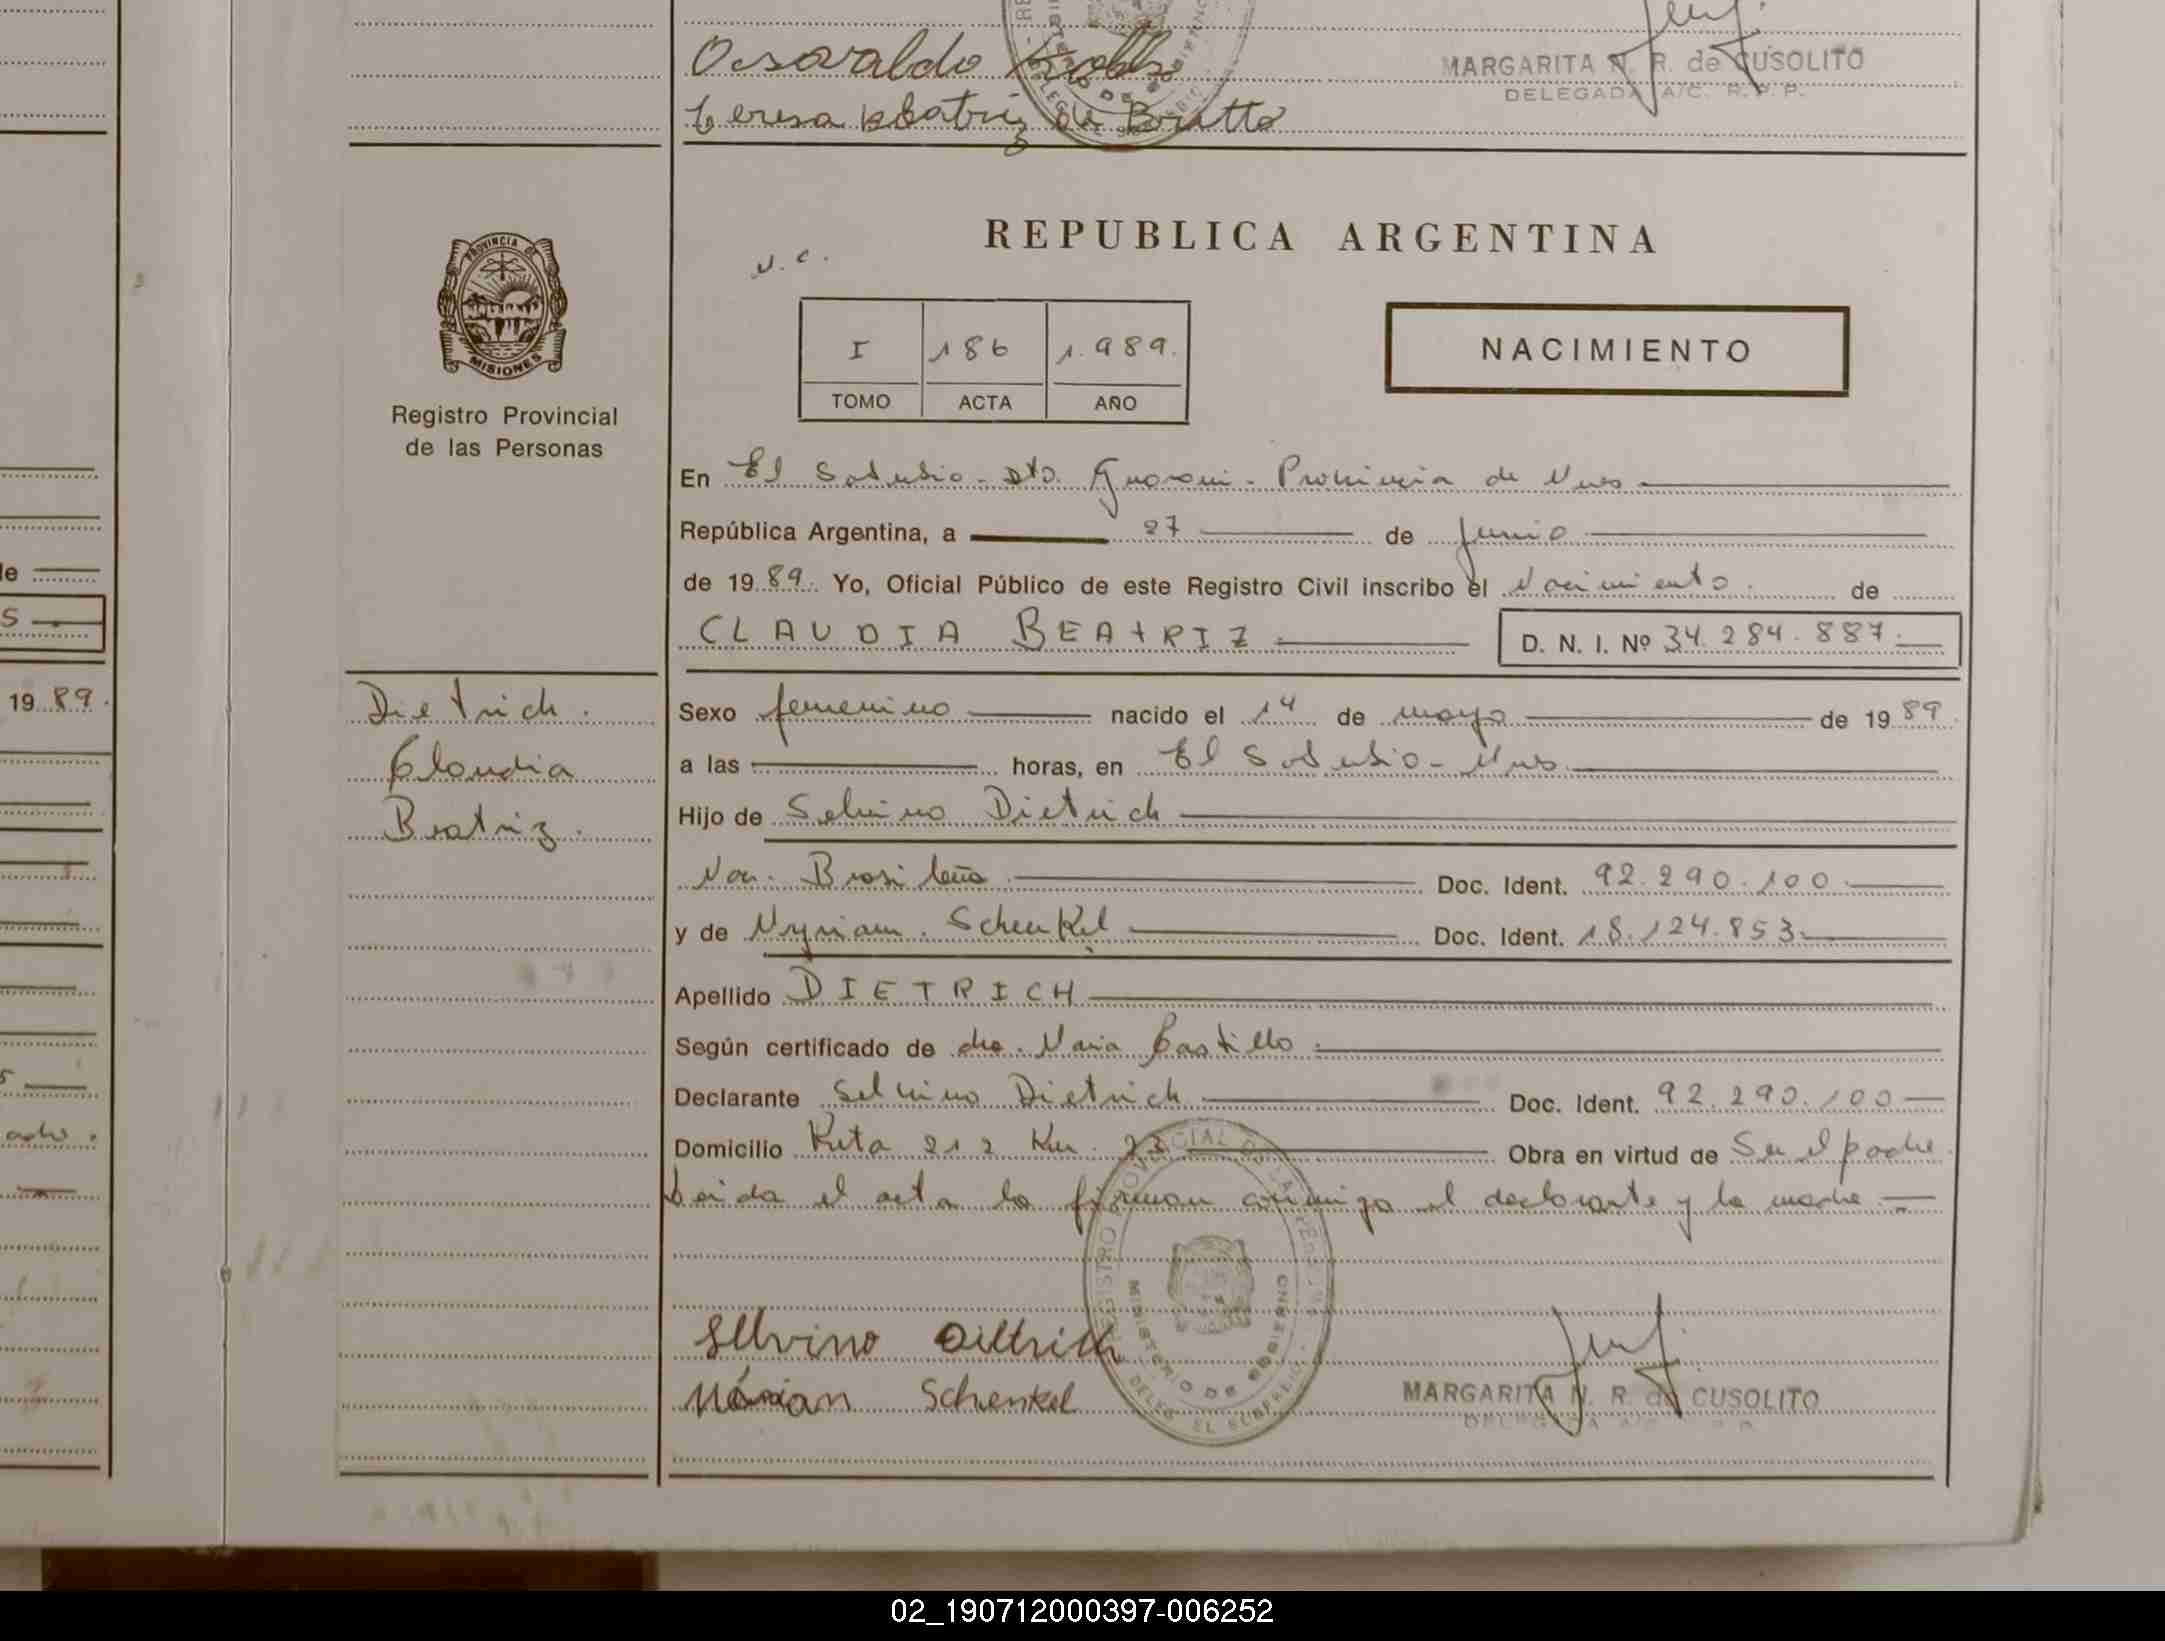 Osvaldo
MARGARITA N. R. de CUSOLITO
DELEGADA A/C. R.P.P.
Teresa Beatriz de Britto
REPUBLICA ARGENTINA
N.C.
PROVINCIA DE
MISIONES
Registro Provincial
de las Personas
I 186 1.989.
TOMO ACTA AÑO
NACIMIENTO
En El Soberbio - Dto. Guarani - Provincia de Mnes
República Argentina, a 27 de Junio
de 1989. Yo, Oficial Público de este Registro Civil inscribo el Nacimiento. de
CLAUDIA BEATRIZ
D. N. I. Nº 34.284.887.
19 89.
Dietrich.
Claudia
Beatriz.
Sexo femenino nacido el 14 de mayo de 19 89
a las horas, en El Soberbio - Mnes
Hijo de Selvino Dietrich
Nac. Brasileña Doc. Ident. 92.290.100
y de Myriam. Schenkel Doc. Ident. 18.124.853.
Apellido DIETRICH
Según certificado de dra. Maria Castillo.
Declarante Selvino Dietrich Doc. Ident. 92.290.100
Domicilio Ruta 212 Km. 23 Obra en virtud de Ser el padre
Leida el acta la firman conmigo el declarante y la madre.
REGISTRO PROVINCIAL DE LAS PERSONAS
MINISTERIO DE GOBIERNO
DELEG. EL SOBERBIO
Selvino Dietrich
Schenkel
MARGARITA N. R. de CUSOLITO
DELEGADA A/C. R.P.P.
02_190712000397-006252